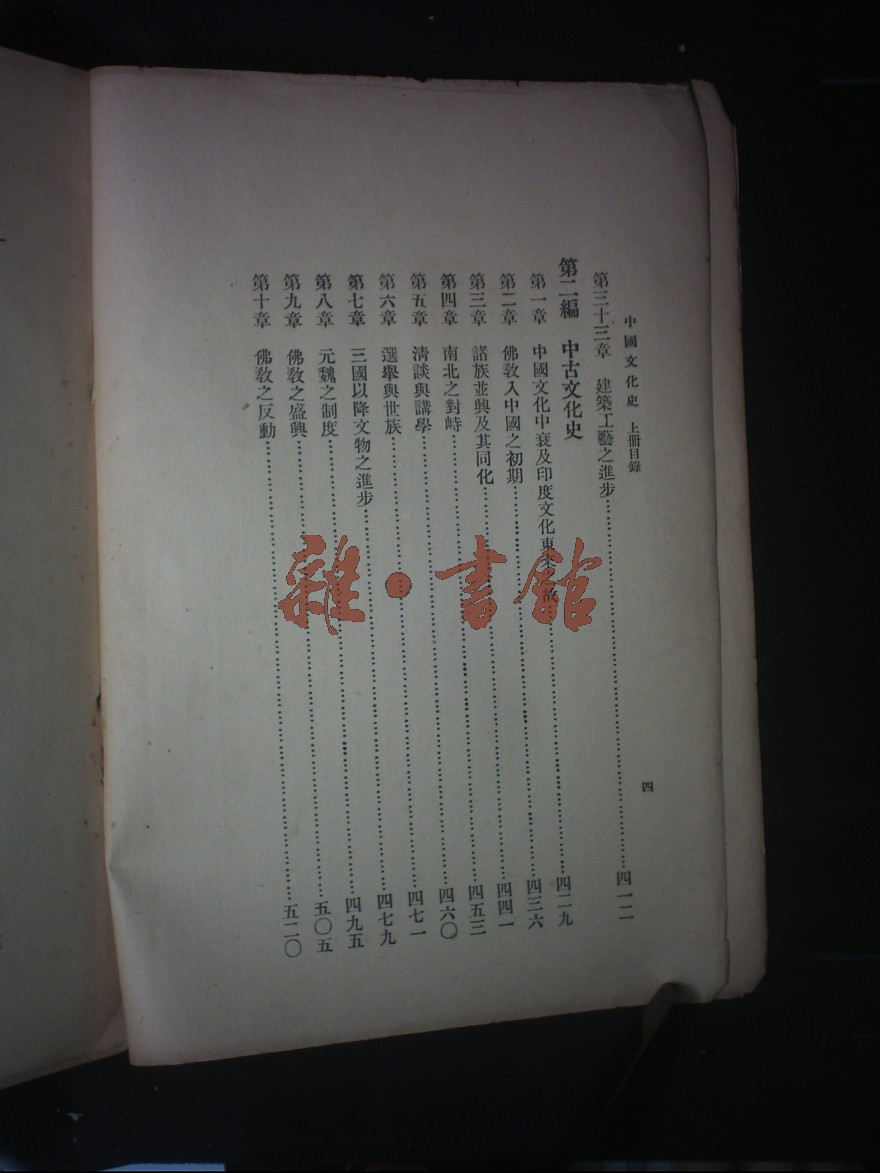 中國文化史 上冊目錄
四
第三十三章 建築工藝之進步……四一二
第二編 中古文化史
第一章 中國文化中衰及印度文化東來故……四二九
第二章 佛敎入中國之初期……四三六
第三章 諸族並興及其同化……四四一
第四章 南北之對峙……四五三
第五章 淸談與講學……四六〇
第六章 選舉與世族……四七一
第七章 三國以降文物之進步……四七九
第八章 元魏之制度……四九五
第九章 佛敎之盛興……五〇五
第十章 佛敎之反動……五二〇
雜·書館